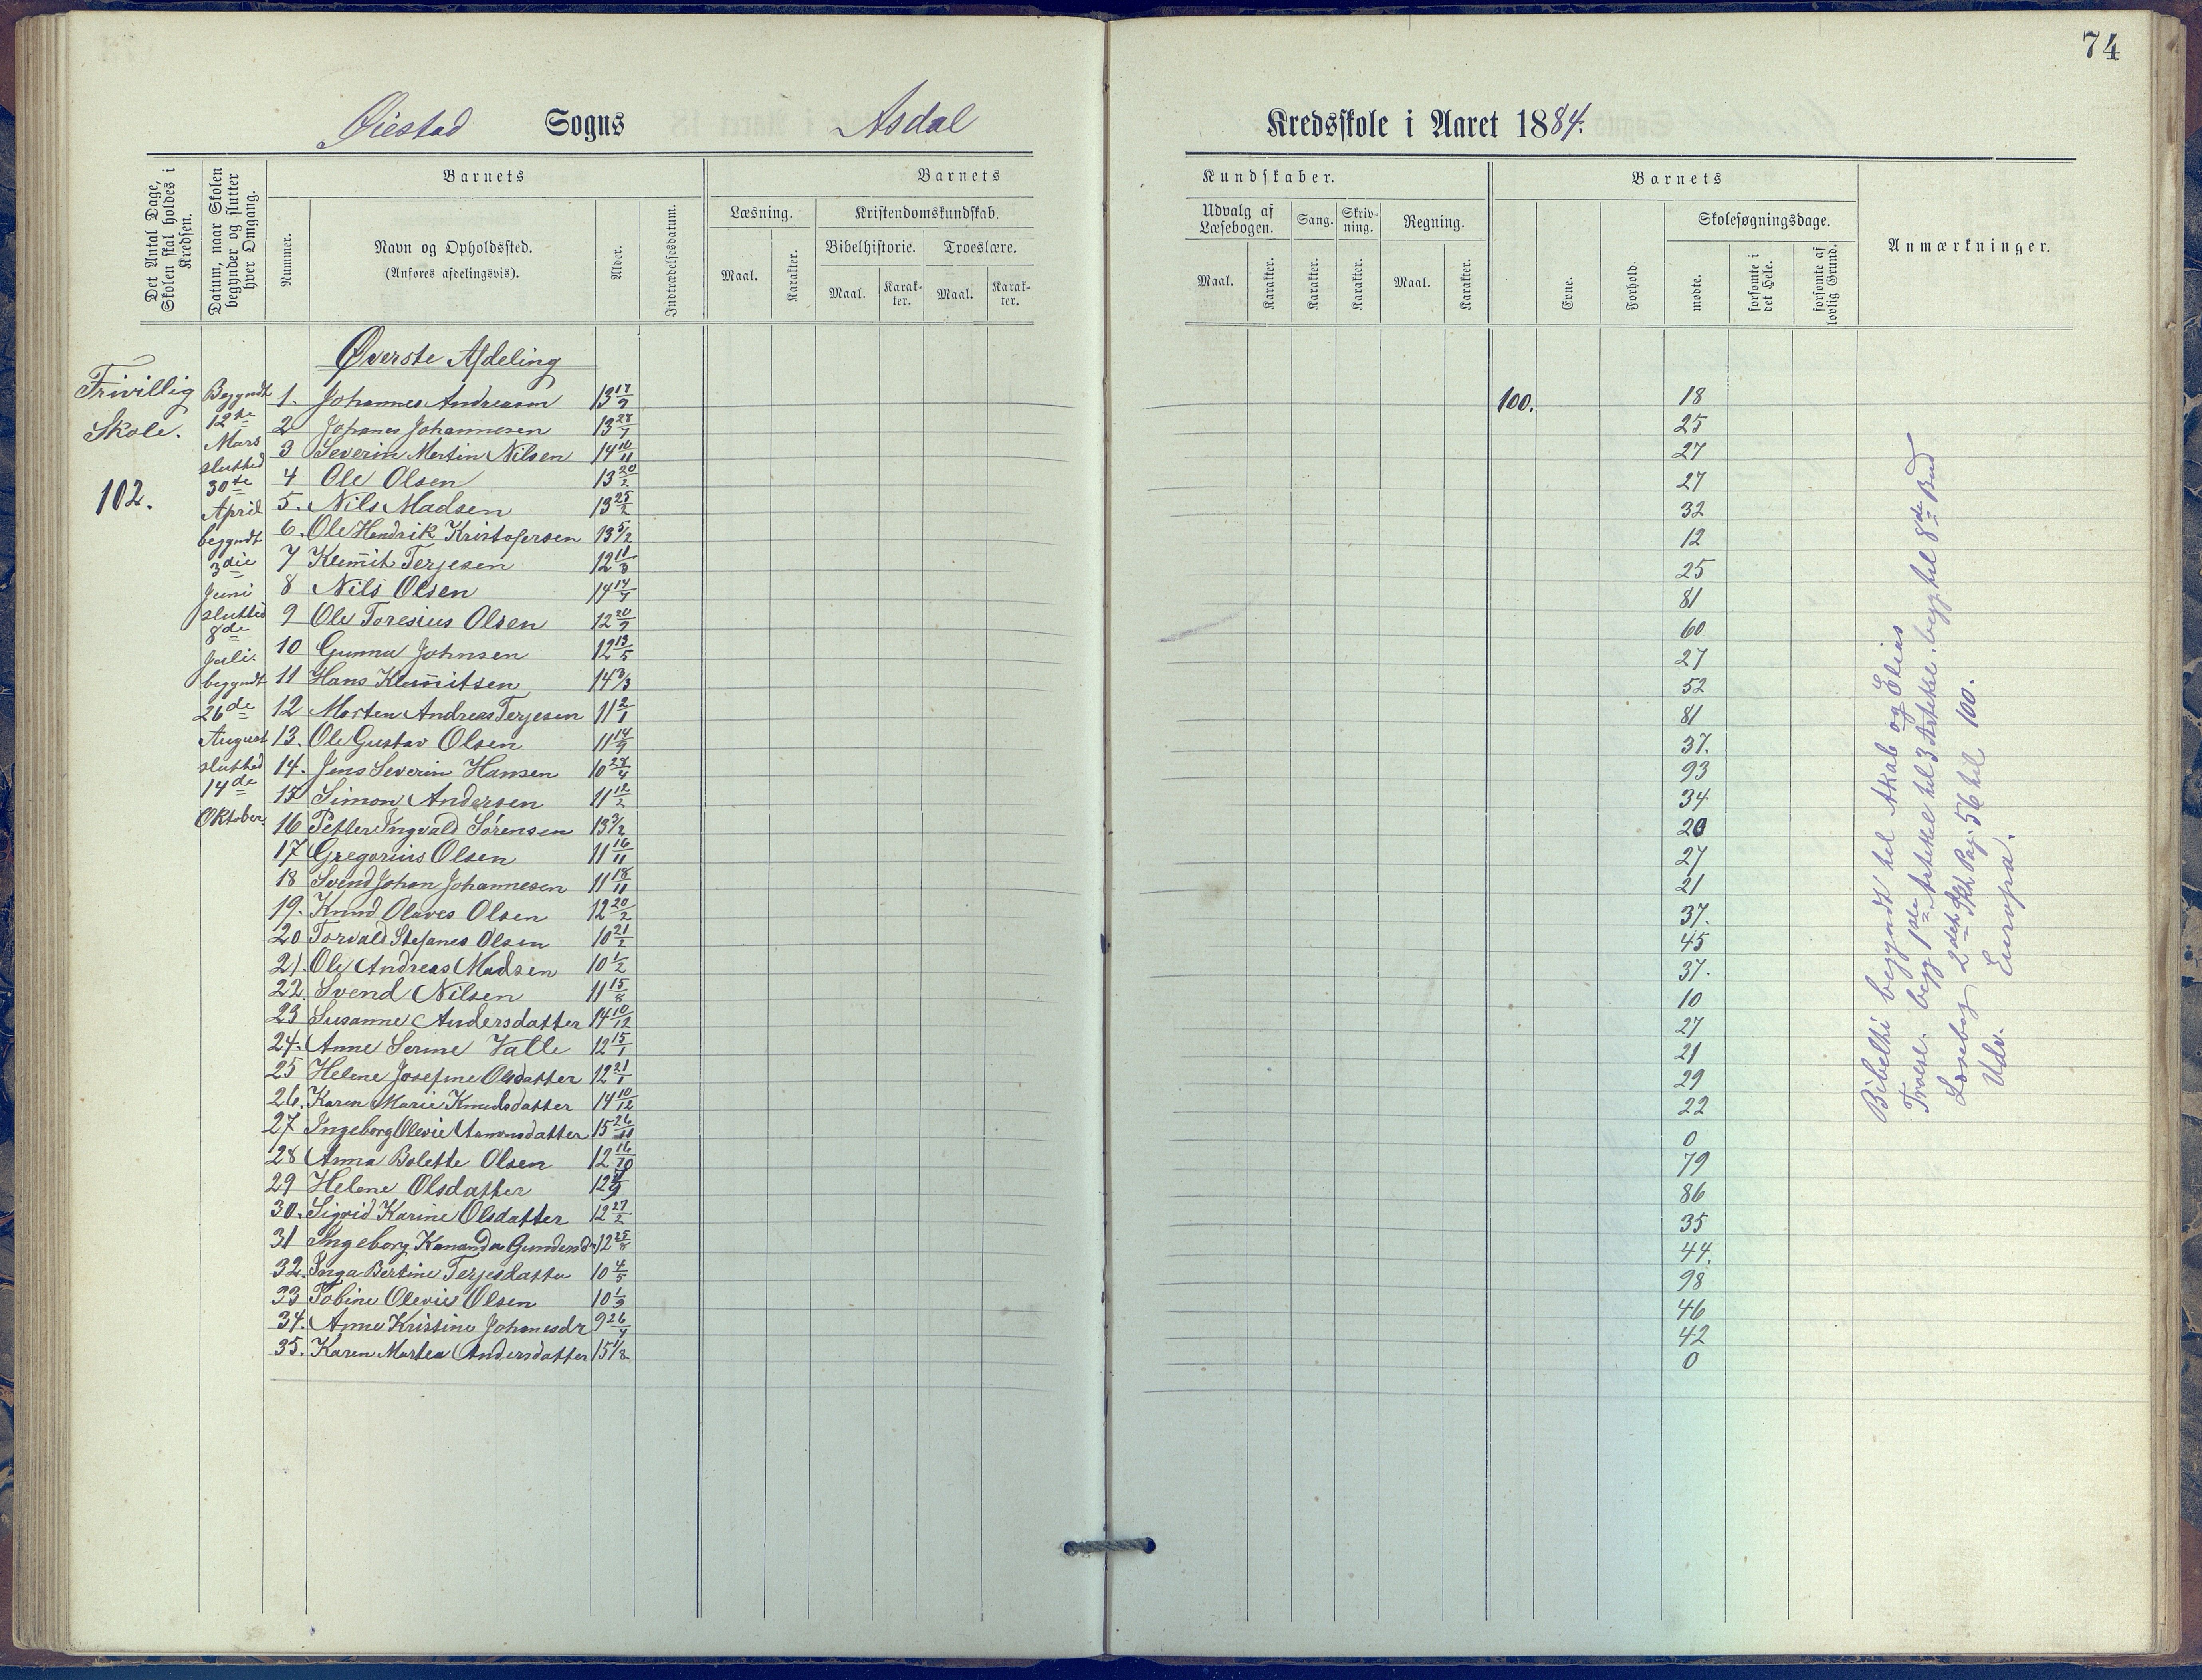 74
Øiestad Sogns Asdal Kredsskole i Aaret 1884.
Det Antal Dage, Skolen skal holdes i Kredsen.
Datum, naar Skolen begynder og slutter hver Omgang.
Barnets
Nummer.
Navn og Opholdssted.
(Anføres afdelingsvis).
Alder.
Indtrædelsesdatum.
Barnets Kundskaber.
Læsning.
Maal.
Karakter.
Kristendomskundskab.
Bibelhistorie.
Maal.
Karakter.
Troeslære.
Maal.
Karakter.
Udvalg af Læsebogen.
Maal.
Karakter.
Sang.
Karakter.
Skrivning.
Karakter.
Regning.
Maal.
Karakter.
Barnets
Evne.
Forhold.
Skolesøgningsdage.
mødte.
forsømte i det Hele.
forsømte af lovlig Grund.
Anmærkninger.
Frivillig
Skole.
102.
Begyndt
12te
Mars
slutted
30te
April
begyndt
3die
Juni
slutted
8de
Juli.
begyndt
26de
August
slutted
14de
Oktober.
Øverste Afdeling
1. Johannes Andreasen 13 17/9 100. 18
2 Johanes Johannesen 13 28/7 25
3 Severin Martin Nilsen 14 10/11 27
4 Ole Olsen 13 20/2 27
5. Nils Madsen 13 25/2 32
6. Ole Hendrik Kristofersen 13 5/2 12
7 Klemmit Terjesen 12 11/3 25
8 Nils Olsen 14 17/7 81
9 Ole Toresius Olsen 12 20/9 60
10 Gunnu Johnsen 12 13/5 27
11 Hans Klemmitsen 14 3/3 52
12 Morten Andreas Terjesen 11 2/1 81
13. Ole Gustav Olsen 11 14/9 37.
14. Jens Severin Hansen 10 28/4 93
15 Simon Andersen 11 12/2 34
16 Petter Ingvald Sørensen 13 3/2 20
17 Gregorius Olsen 11 16/11 27
18 Svend Johan Johannesen 11 18/11 21
19. Knud Olaves Olsen 12 20/2 37.
20 Torvald Stefanes Olsen 10 21/2 45
21. Ole Andreas Madsen 10 1/2 37.
22. Svend Nilsen 11 15/8 10
23 Susanne Andersdatter 14 10/12 27
24. Anne Serine Valle 12 15/1 21
25 Helene Josefine Olsdatter 12 21/1 29
26. Karen Marie Knudsdatter 14 10/12 22
27 Ingeborg Olevie Aamonsdatter 15 26/11 0
28 Anna Bolette Olsen 12 16/10 79
29 Helene Olsdatter 12 86
30. Sigrid Karine Olsdatter 12 27/2 35
31 Ingeborg Kananda Gundersd. 12 25/8 44.
32. Inga Bertine Terjesdatter 10 4/5 98
33 Tobine Olevie Olsen 10 1/9 46
34. Anne Kristine Johanesdr 9 26/7 42
35. Karen Martea Andersdatter 15 1/8 0
Bibelhi begyndt til Akab og Elias
Troesl. begy 1ste Artikkel til 3 Artikke. begy. til 8de Bud
Læsebog 2det Skk Pag. 56 til 100.
Udv. Europa.